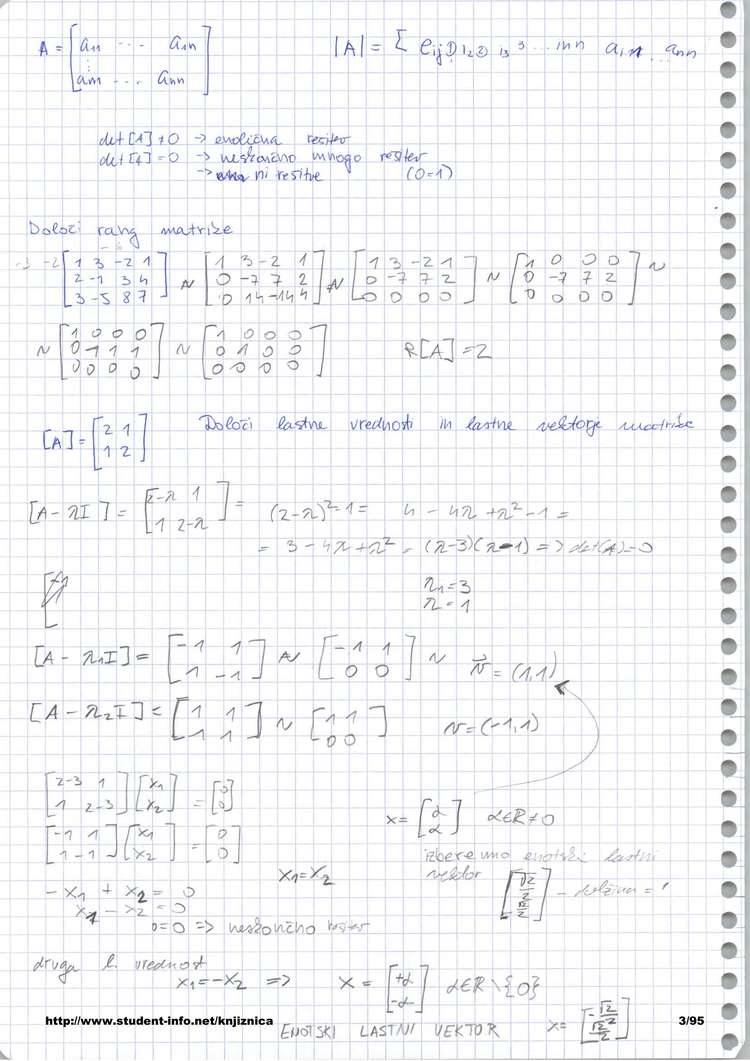 A = [a11 ... a1n ⋮ am ... ann] |A| = [ eij
det[A]≠0 → enolična rešitev
det[A]=0 → neskončno mnogo rešitev
→ ni rešitve (0=1)
Določi rang matrike
-3 -2 [1 3 -2 1; 2 -1 3 4; 3 -5 8 7] ~ [1 3 -2 1; 0 -7 7 2; 0 14 -14 4] ~ [1 3 -2 1; 0 -7 7 2; 0 0 0 0] ~ [1 0 0 0; 0 -7 7 2; 0 0 0 0] ~
~ [1 0 0 0; 0 -1 1 1; 0 0 0 0] ~ [1 0 0 0; 0 1 0 0; 0 0 0 0] R[A]=2
[A]=[2 1; 1 2] Določi lastne vrednosti in lastne vektorje matrike
[A-λI] = [2-λ 1; 1 2-λ] = (2-λ)²-1 = 4-4λ+λ²-1 =
= 3-4λ+λ² = (λ-3)(λ-1) => det(A)=0
λ1=3
λ=1
[A-λ1I] = [-1 1; 1 -1] ~ [-1 1; 0 0] ~ v = (1,1)
[A-λ2I] = [1 1; 1 1] ~ [1 1; 0 0] v=(-1,1)
[2-3 1; 1 2-3] [x1; x2] = [0; 0]
x = [α; α] α∈R≠0
[-1 1; 1 -1] [x1; x2] = [0; 0]
izberemo enotski lastni
vektor [√2/2; √2/2] - dolžina = 1
x1=x2
-x1 + x2 = 0
x1 - x2 = 0
0=0 => neskončno rešitev
druga l. vrednost
x1=-x2 => x = [+α; -α] α∈R\{0}
http://www.student-info.net/knjiznica 3/95
ENOTSKI LASTNI VEKTOR x= [-√2/2; √2/2]